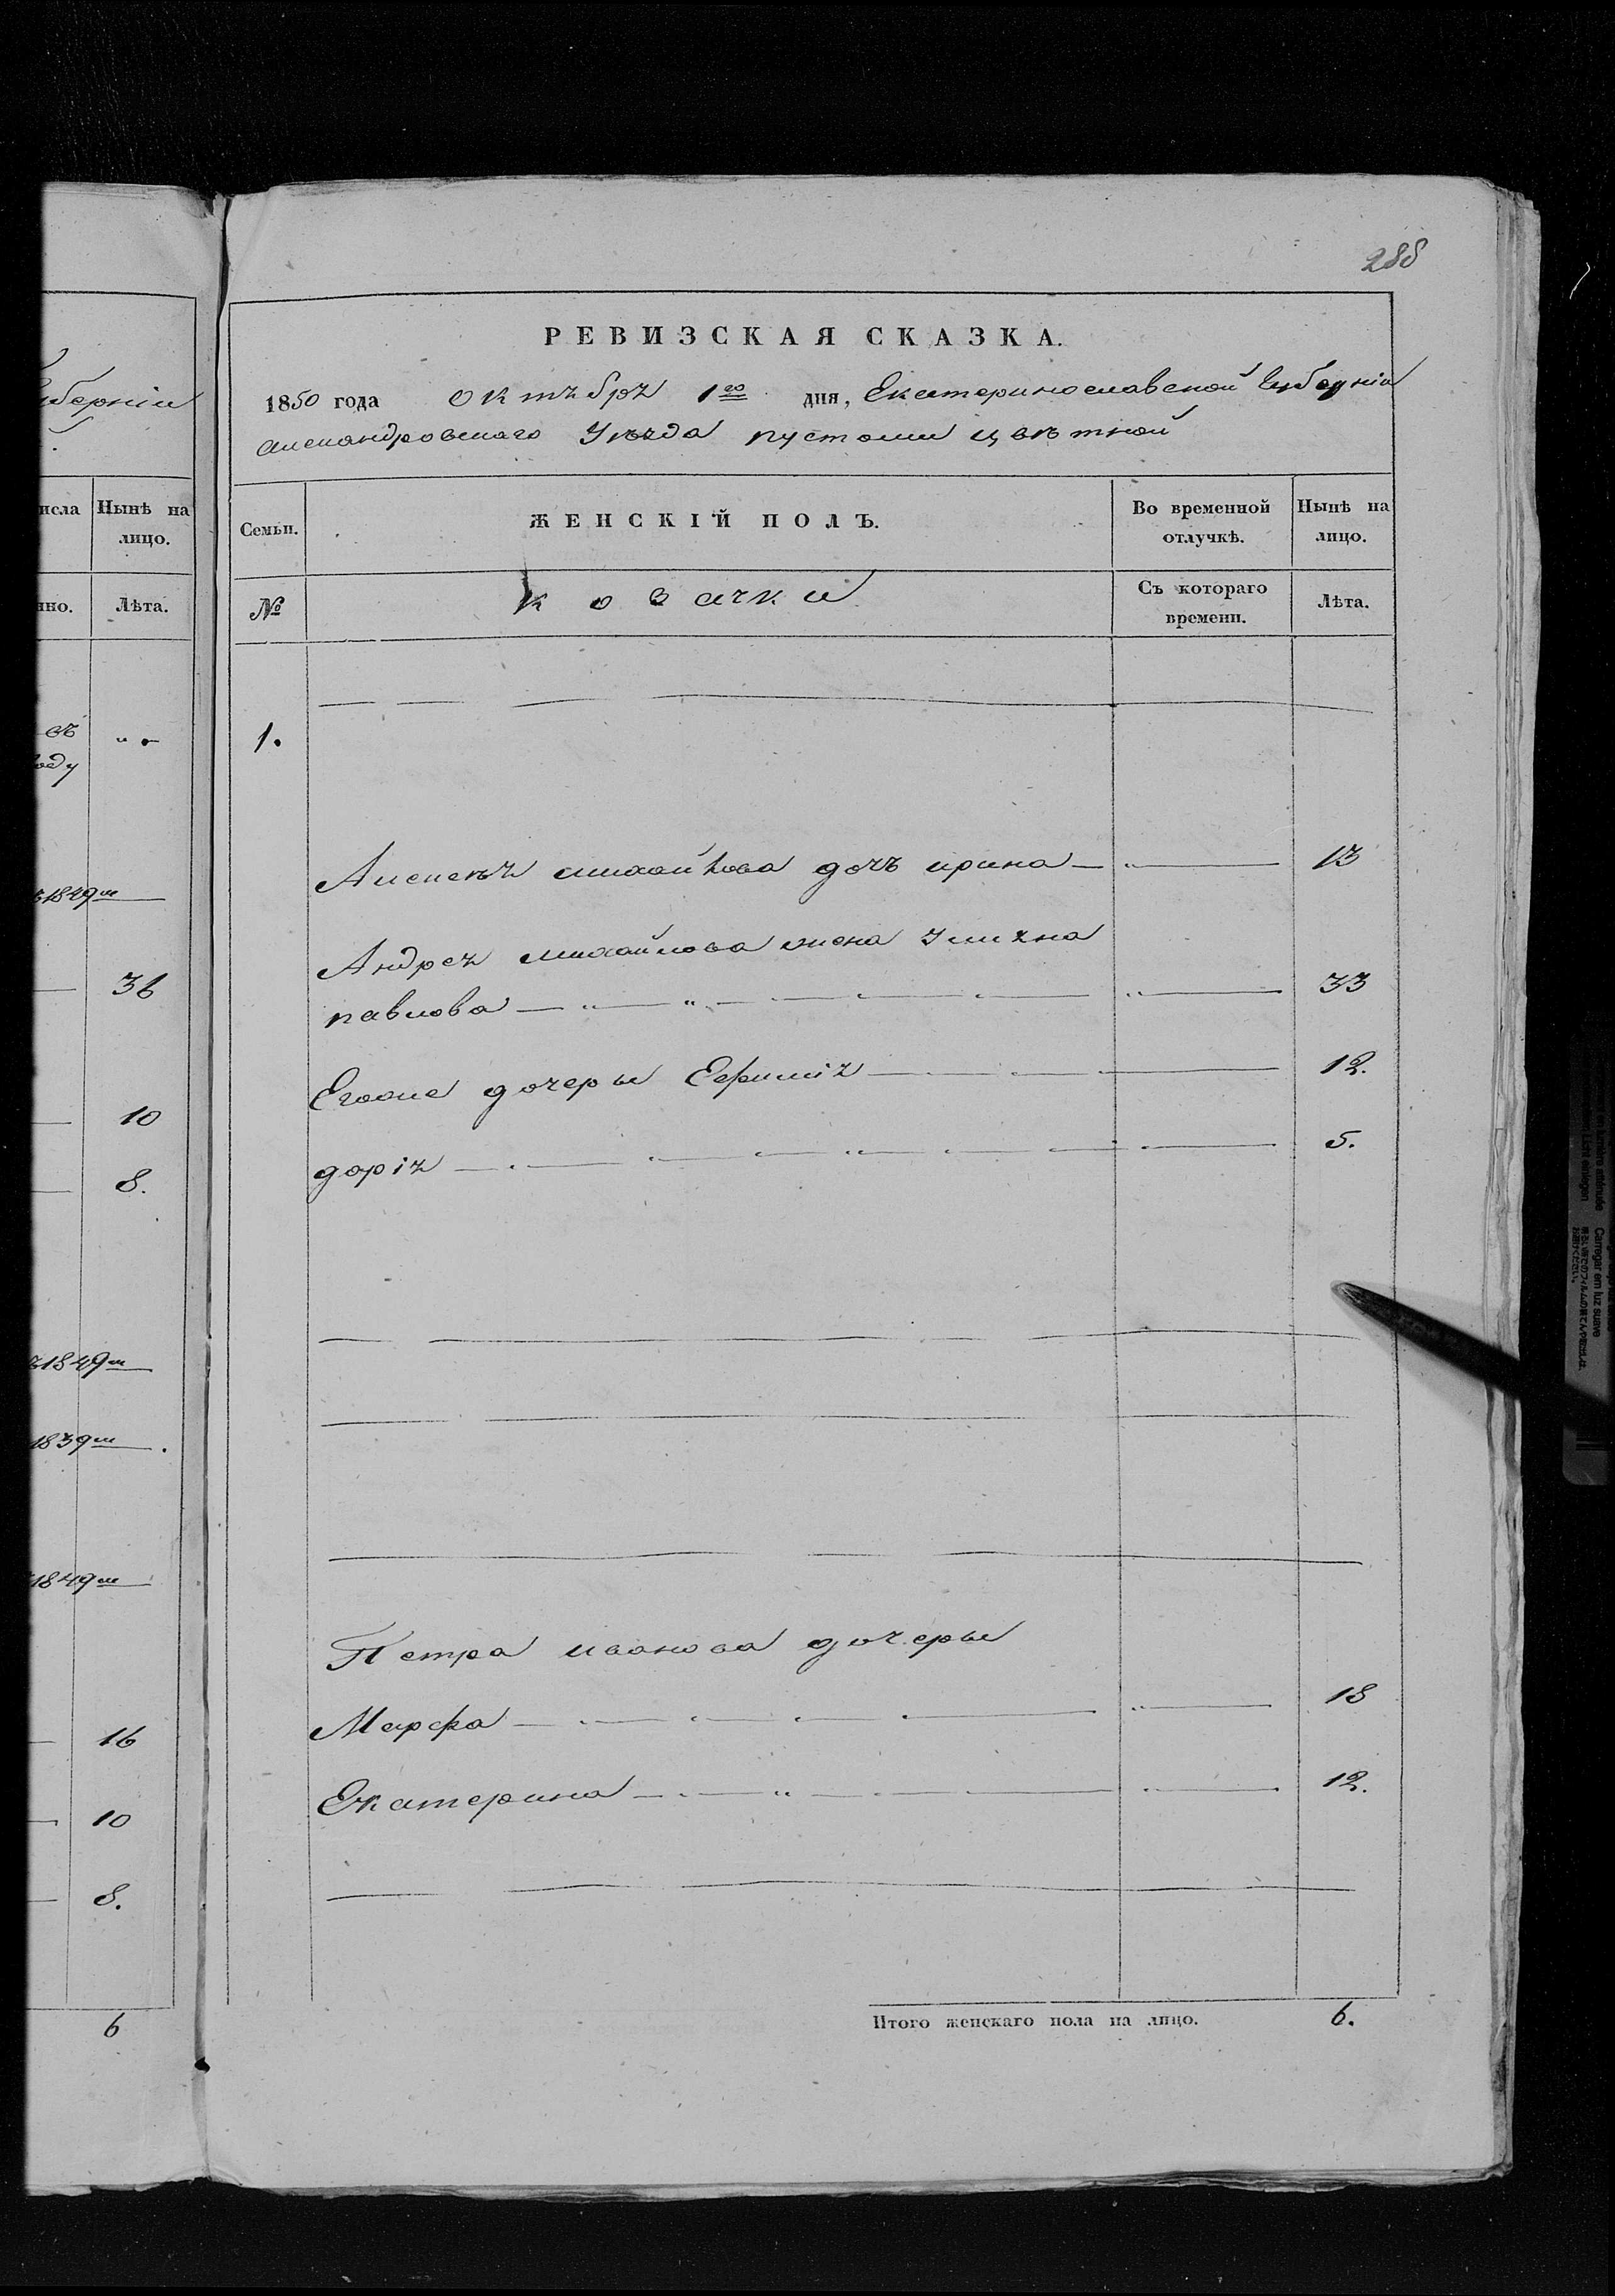 288
губерніи
РЕВИЗСКАЯ СКАЗКА.
1850 года октября 1го дня, Екатеринославской губерніи
александровскаго Уѣзда пустоши цвѣтной
исла
Нынѣ на
лицо.
нно.
Лѣта.
Семьи.
ЖЕНСКІЙ ПОЛЪ.
Во временной
отлучкѣ.
Нынѣ на
лицо.
№
козачки
Съ котораго
времени.
Лѣта.
въ
году
1.
Алексѣя михайлова дочь ирина 13
1849м
Андрея михайлова жена Улияна
павлова 33
36
Егоже дочеры Ефимія 12.
10
дарія 5.
8.
1849м
1839м
1849м
Петра иванова дочеры
Марфа 18
16
Екатерина 12.
10
8.
6
Итого женскаго пола на лицо. 6.